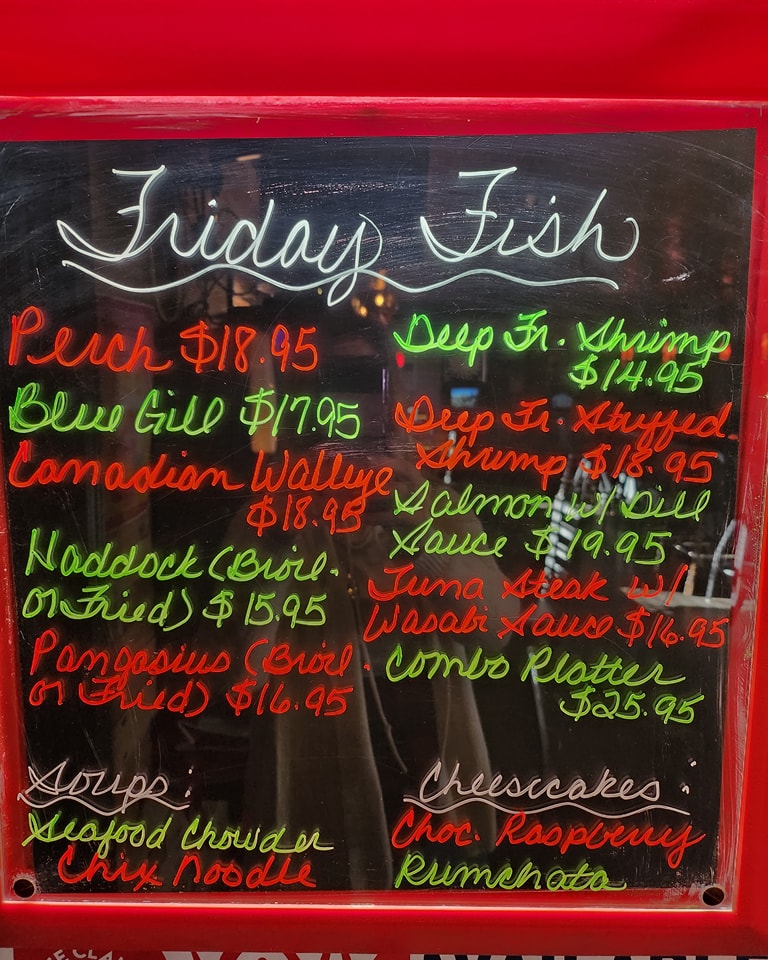 Friday Fish
Perch $18.95
Blue Gill $17.95
Canadian Walleye
$18.95
Haddock (Broil.
or Fried) $15.95
Pangasius (Broil.
or Fried) $16.95
Deep Fr. Shrimp
$14.95
Deep Fr. Stuffed
Shrimp $18.95
Salmon w/ Dill
Sauce $19.95
Tuna Steak w/
Wasabi Sauce $16.95
Combo Platter
$25.95
Soups:
Seafood Chowder
Chix Noodle
Cheesecakes:
Choc. Raspberry
Rumchata